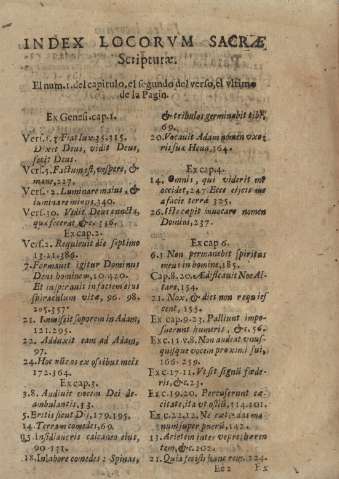 INDEX LOCORVM SACRÆ
Scripturæ.
El num.1. del capitulo, el segundo del verso, el vltimo
de la Pagin.
Ex Genesi.cap.1.
Vers. 3 Fiat lux.35.315.
Dixit Deus, vidit Deus,
fecit Deus.
Vers.5. Factum est, vespere, &
mane, 227.
Luminare maius, &
luminare minus, 340.
Vers.30. Vidit Deus cuncta,
quæ fecerat, &c. 338.
Ex cap.2.
Vers.2. Requieuit die septimo
13.21.386.
7. Formauit igitur Dominus
Deus hominem, 10.420.
Et inspirauit in faciem eius
spiraculum vitæ, 96. 98.
205.357.
21. Immisit soporem in Adam,
121.295.
22. Adduxit eam ad Adam,
97.
24. Hoc nunc os ex ossibus meis
172.364.
Ex cap.3.
3.8. Audiuit vocem Dei de-
ambulantis, 13.
5. Eritis sicut Dij, 179.195.
14. Terram comedes, 69.
15. Insidiaueris calcaneo eius,
90.131.
18. In labore comedes: Spinas,
& tribulos germinabit tibi,
69.
20. Vocauit Adam nomen vxo-
ris suæ Heua, 364.
Ex cap.4.
14. Omnis, qui viderit me
occidet, 247. Ecce eijcis me
a facie terræ 325.
26. Iste cæpit inuocare nomen
Domini, 237.
Ex cap 6.
6.3 Non permanebit spiritus
meus in homine, 185.
Cap.8.20. Ædificauit Noe Al-
tare, 154.
21. Nox, & dies non requies
cent, 153.
Ex cap.9.23. Pallium impo-
suerunt humeris, &c. 56.
Ex c.11.v.8. Non audeat vnus-
quisque vocem proximi sui,
166.259.
Ex c.17.11. Vt sit signũ fœde-
ris, &c. 23.
Ex c.19.20. Percusserunt cæ-
citate, ita vt ostiũ, 114.101.
Ex c.22.12. Ne extendas ma
num super puerũ, 142.
13. Arietem inter vepres hæren
tem, &c. 202.
21. Quia fecisti hanc rem, 324.
Ee 2
Ex